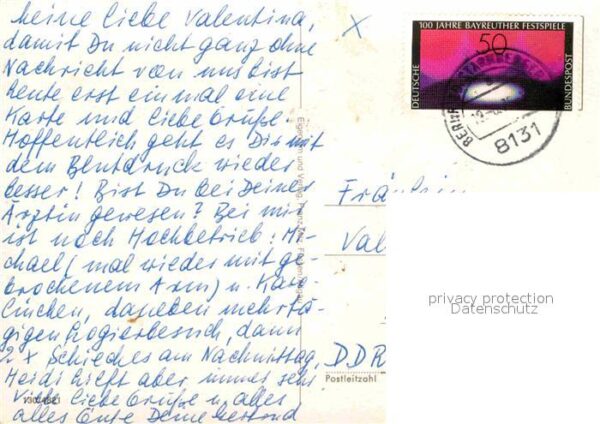 Meine liebe Valentina,
damit Du nicht ganz ohne
Nachricht von uns bist
heute erst einmal eine
Karte und liebe Grüße.
Hoffentlich geht es Dir mit
dem Blutdruck wieder
besser! Bist Du bei Deiner
Ärztin gewesen? Bei mir
ist noch Hochbetrieb: Mi-
chael (mal wieder mit ge-
brochenem Arm) u. Karo-
linchen, daneben mehrtä-
gigen Logierbesuch, dann
2 x Schieches am Nachmittag,
Heidi hilft aber immer sehr
Viele liebe Grüße u. alles
alles Gute Deine
X
100 JAHRE BAYREUTHER FESTSPIELE
50
DEUTSCHE
BUNDESPOST
STARNBERGER
8131
Eigentum und Verlag
Fräulein
Val
DDR
Postleitzahl
privacy protection
Datenschutz